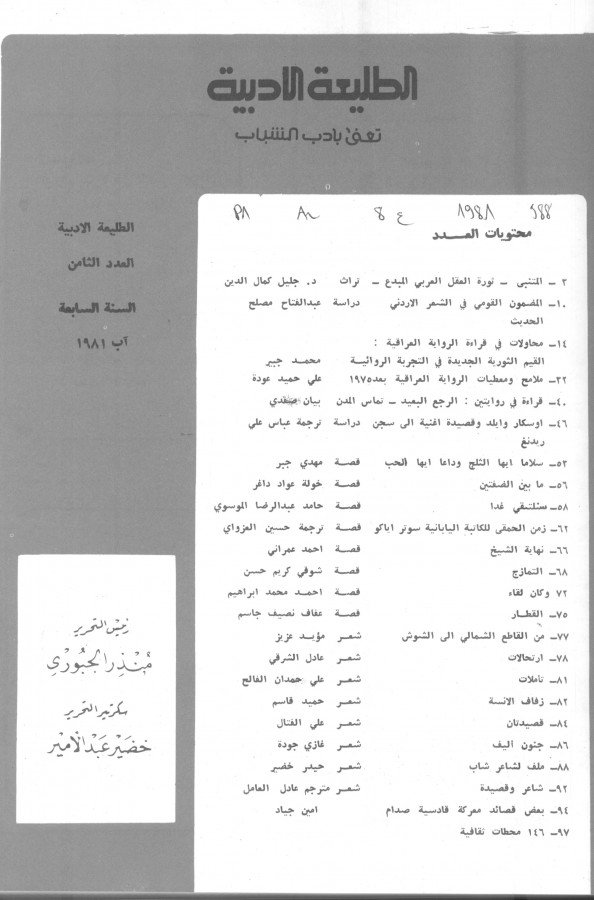 الطليعة الادبية
تعنى بادب الشباب
588 1981 ع 8
محتويات العـــدد
الطليعة الادبية
العدد الثامن
السنة السابعة
آب ١٩٨١
٢ – المتنبي – ثورة العقل العربي المبدع – تراث د. جليل كمال الدين
١٠– المضمون القومي في الشعر الاردني دراسة عبدالفتاح مصلح
الحديث
١٤– محاولات في قراءة الرواية العراقية :
القيم الثورية الجديدة في التجربة الروائية محمد جبير
٣٢– ملامح ومعطيات الرواية العراقية بعد١٩٧٥ علي حميد عودة
٤٠– قراءة في روايتين : الرجع البعيد – تماس المدن بيان صفدي
٤٦– اوسكار وايلد وقصيدة اغنية الى سجن دراسة ترجمة عباس علي
ريدنغ
٥٢– سلاما ايها الثلج وداعا ايها الحب قصـة مهدي جبر
٥٦– ما بين الضفتين قصـة خولة عواد داغر
٥٨– سنلتقي غدا قصـة حامد عبدالرضا الموسوي
٦٢– زمن الحمقى للكاتبة اليابانية سوتر اياكو قصـة ترجمة حسين العزواي
٦٦– نهاية الشيخ قصـة احمد عمراني
٦٨– التمازج قصـة شوقي كريم حسن
٧٢ وكان لقاء قصـة احمد محمد ابراهيم
٧٥– القطار قصـة عفاف نصيف جاسم
٧٧– من القاطع الشمالي الى الشوش شعـر مؤيد عزيز
٧٨– ارتحالات شعـر عادل الشرقي
٨١– تأملات شعـر علي حمدان الفالح
٨٢– زفاف الانسة شعـر حميد قاسم
٨٤– قصيدتان شعـر علي الفتال
٨٦– جنون أليف شعـر غازي جودة
٨٨– ملف لشاعر شاب شعـر حيدر خضير
٩٢– شاعر وقصيدة شعـر مترجم عادل العامل
٩٤– بعض قصائد معركة قادسية صدام امين جياد
٩٧– ١٤٦ محطات ثقافية
رئيس التحرير
منذر الجبوري
سكرتير التحرير
خضير عبد الامير